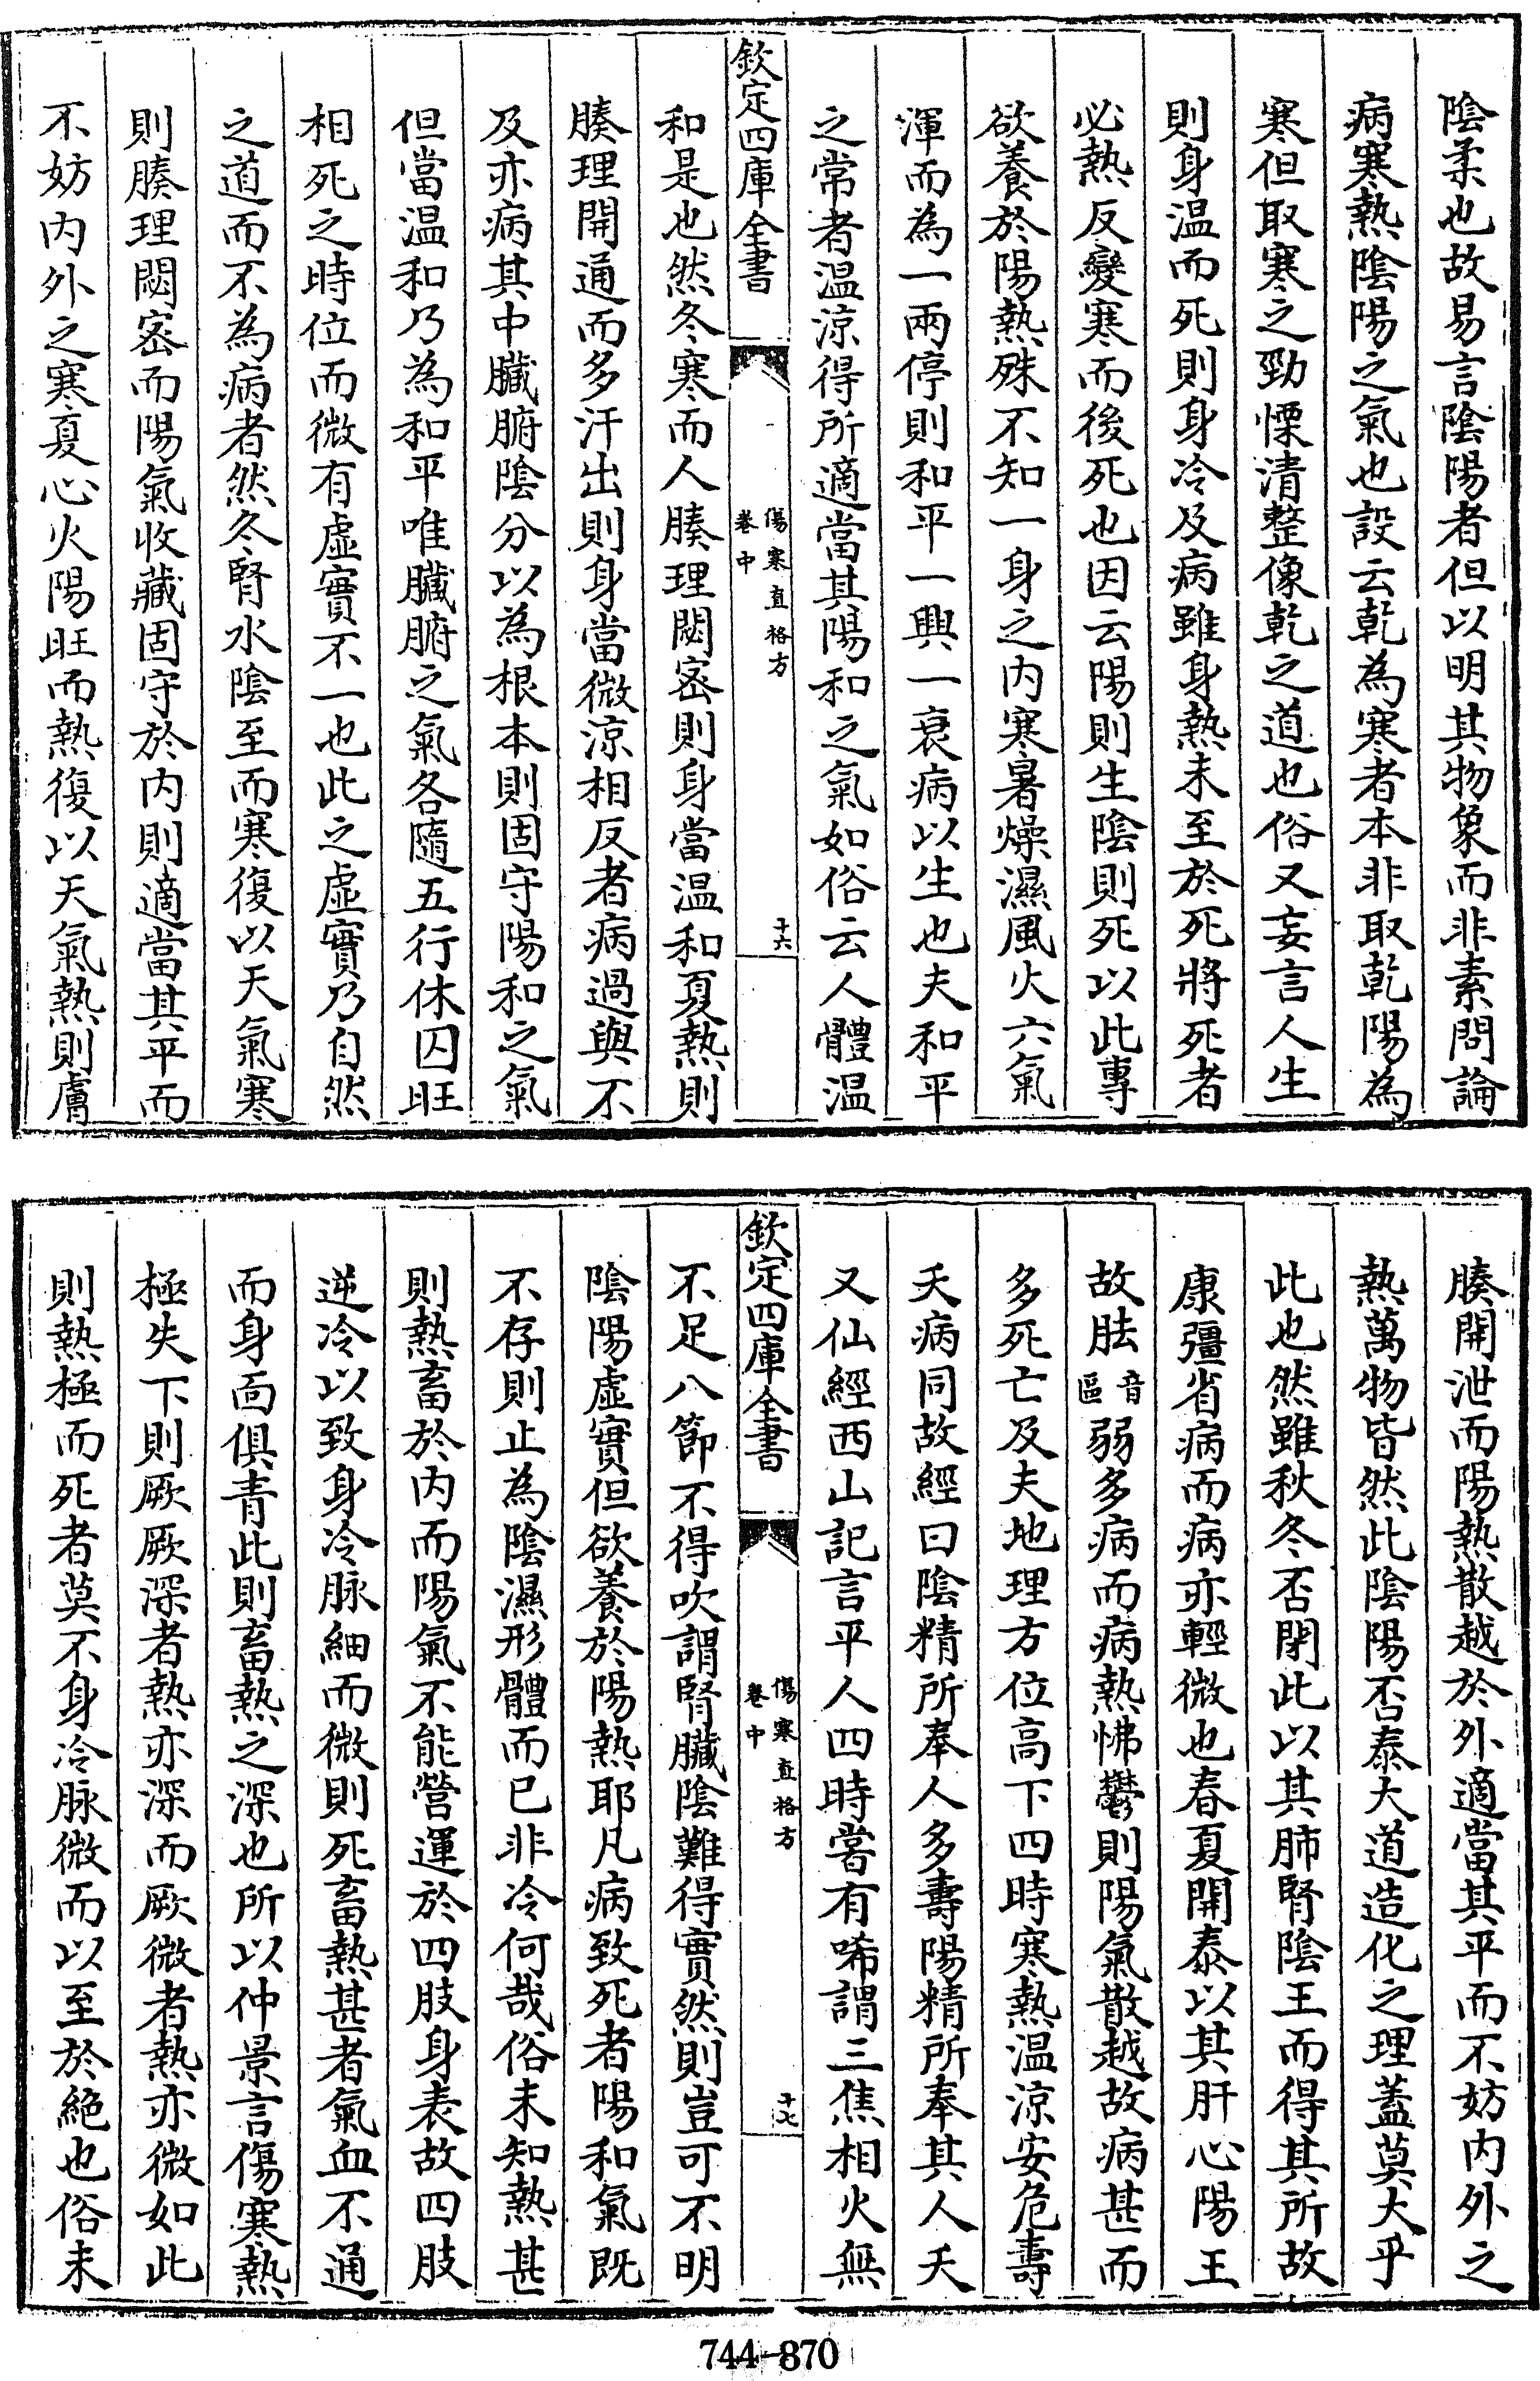 陰柔也故易言陰陽者但以明其物象而非素問論
病寒熱陰陽之氣也設云乾為寒者本非取乾陽為
寒但取寒之勁慄清整像乾之道也俗又妄言人生
則身温而死則身冷及病雖身熱未至於死將死者
必熱反變寒而後死也因云陽則生陰則死以此專
欲養於陽熱殊不知一身之内寒暑燥濕風火六氣
渾而為一兩停則和平一興一衰病以生也夫和平
之常者温涼得所適當其陽和之氣如俗云人體温
欽定四庫全書
傷寒直格方
卷中
十六
和是也然冬寒而人腠理閟宻則身當温和夏熱則
腠理開通而多汗出則身當微涼相反者病過與不
及亦病其中臟腑陰分以為根本則固守陽和之氣
但當温和乃為和平唯臟腑之氣各隨五行休囚旺
相死之時位而微有虚實不一也此之虚實乃自然
之道而不為病者然冬腎水陰至而寒復以天氣寒
則腠理閟宻而陽氣收藏固守於内則適當其平而
不妨内外之寒夏心火陽旺而熱復以天氣熱則膚
腠開泄而陽熱散越於外適當其平而不妨内外之
熱萬物皆然此陰陽否泰大道造化之理蓋莫大乎
此也然雖秋冬否閉此以其肺腎陰王而得其所故
康彊省病而病亦輕微也春夏開泰以其肝心陽王
故胠音區弱多病而病熱怫鬱則陽氣散越故病甚而
多死亡及夫地理方位高下四時寒熱温涼安危壽
夭病同故經曰陰精所奉人多壽陽精所奉其人夭
又仙經西山記言平人四時嘗有唏謂三焦相火無
欽定四庫全書
傷寒直格方
卷中
十七
不足八節不得吹謂腎臟陰難得實然則豈可不明
陰陽虚實但欲養於陽熱耶凡病致死者陽和氣既
不存則止為陰濕形體而已非冷何哉俗未知熱甚
則熱畜於内而陽氣不能營運於四肢身表故四肢
逆冷以致身冷脉細而微則死畜熱甚者氣血不通
而身面俱青此則畜熱之深也所以仲景言傷寒熱
極失下則厥厥深者熱亦深而厥微者熱亦微如此
則熱極而死者莫不身冷脉微而以至於絶也俗未
744-870